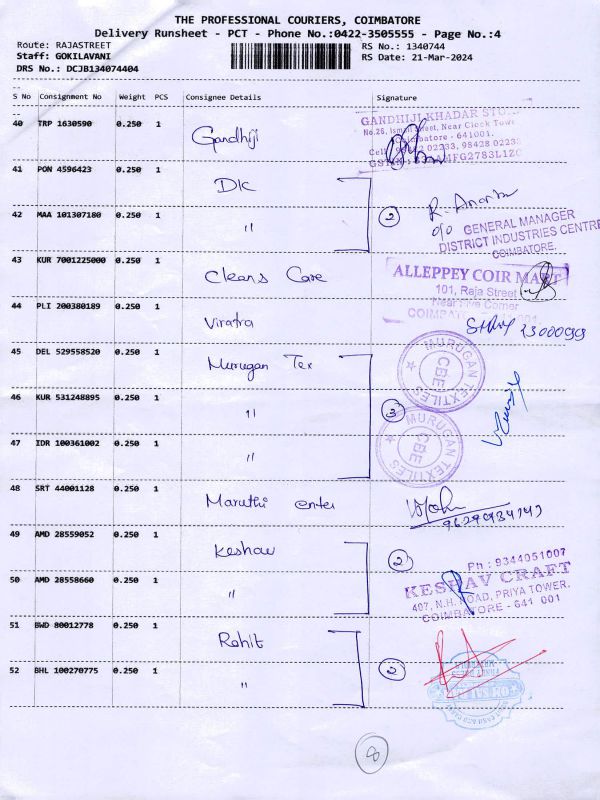 THE PROFESSIONAL COURIERS, COIMBATORE
Delivery Runsheet - PCT - Phone No.:0422-3505555 - Page No.:4
Route: RAJASTREET RS No.: 1340744
Staff: GOKILAVANI RS Date: 21-Mar-2024
DRS No.: DCJB134074404
S No Consignment No Weight PCS Consignee Details Signature
40 TRP 1630590 0.250 1 Gandhiji
GANDHIJI KHADAR
Street, Near Clock
Coimbatore - 641001.
02233, 98428 02233
41 PON 4596423 0.250 1 DIC
42 MAA 101307180 0.250 1 "
2
GENERAL MANAGER
DISTRICT INDUSTRIES CENTRE
COIMBATORE.
43 KUR 7001225000 0.250 1 Cleans Care
ALLEPPEY COIR MART
101, Raja Street
Near Five Corner
44 PLI 200380189 0.250 1
45 DEL 529558520 0.250 1 Murugan Tex
46 KUR 531248895 0.250 1 "
47 IDR 100361002 0.250 1 "
3
MURUGAN TEXTILES
CBE
MURUGAN TEXTILES
CBE
48 SRT 44001128 0.250 1 Maruthi enter
49 AMD 28559052 0.250 1 Keshav
50 AMD 28558660 0.250 1 "
2
Ph : 9344051007
KESHAV CRAFT
407, N.H. ROAD, PRIYA TOWER,
COIMBATORE - 641 001
51 BWD 80012778 0.250 1 Rohit
52 BHL 100270775 0.250 1 "
2
8